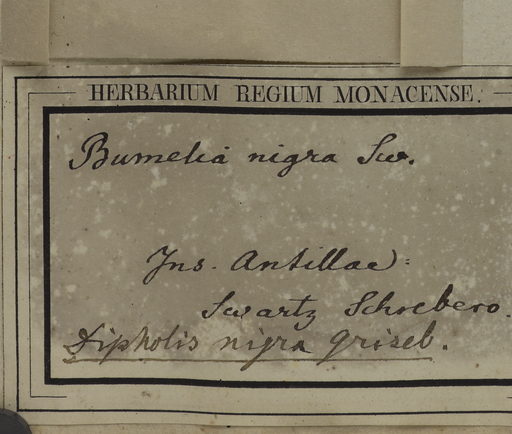 HERBARIUM REGIUM MONACENSE.
Bumelia nigra Sw.
Ins. Antillae:
Swartz Schrebero.
Dipholis nigra griseb.